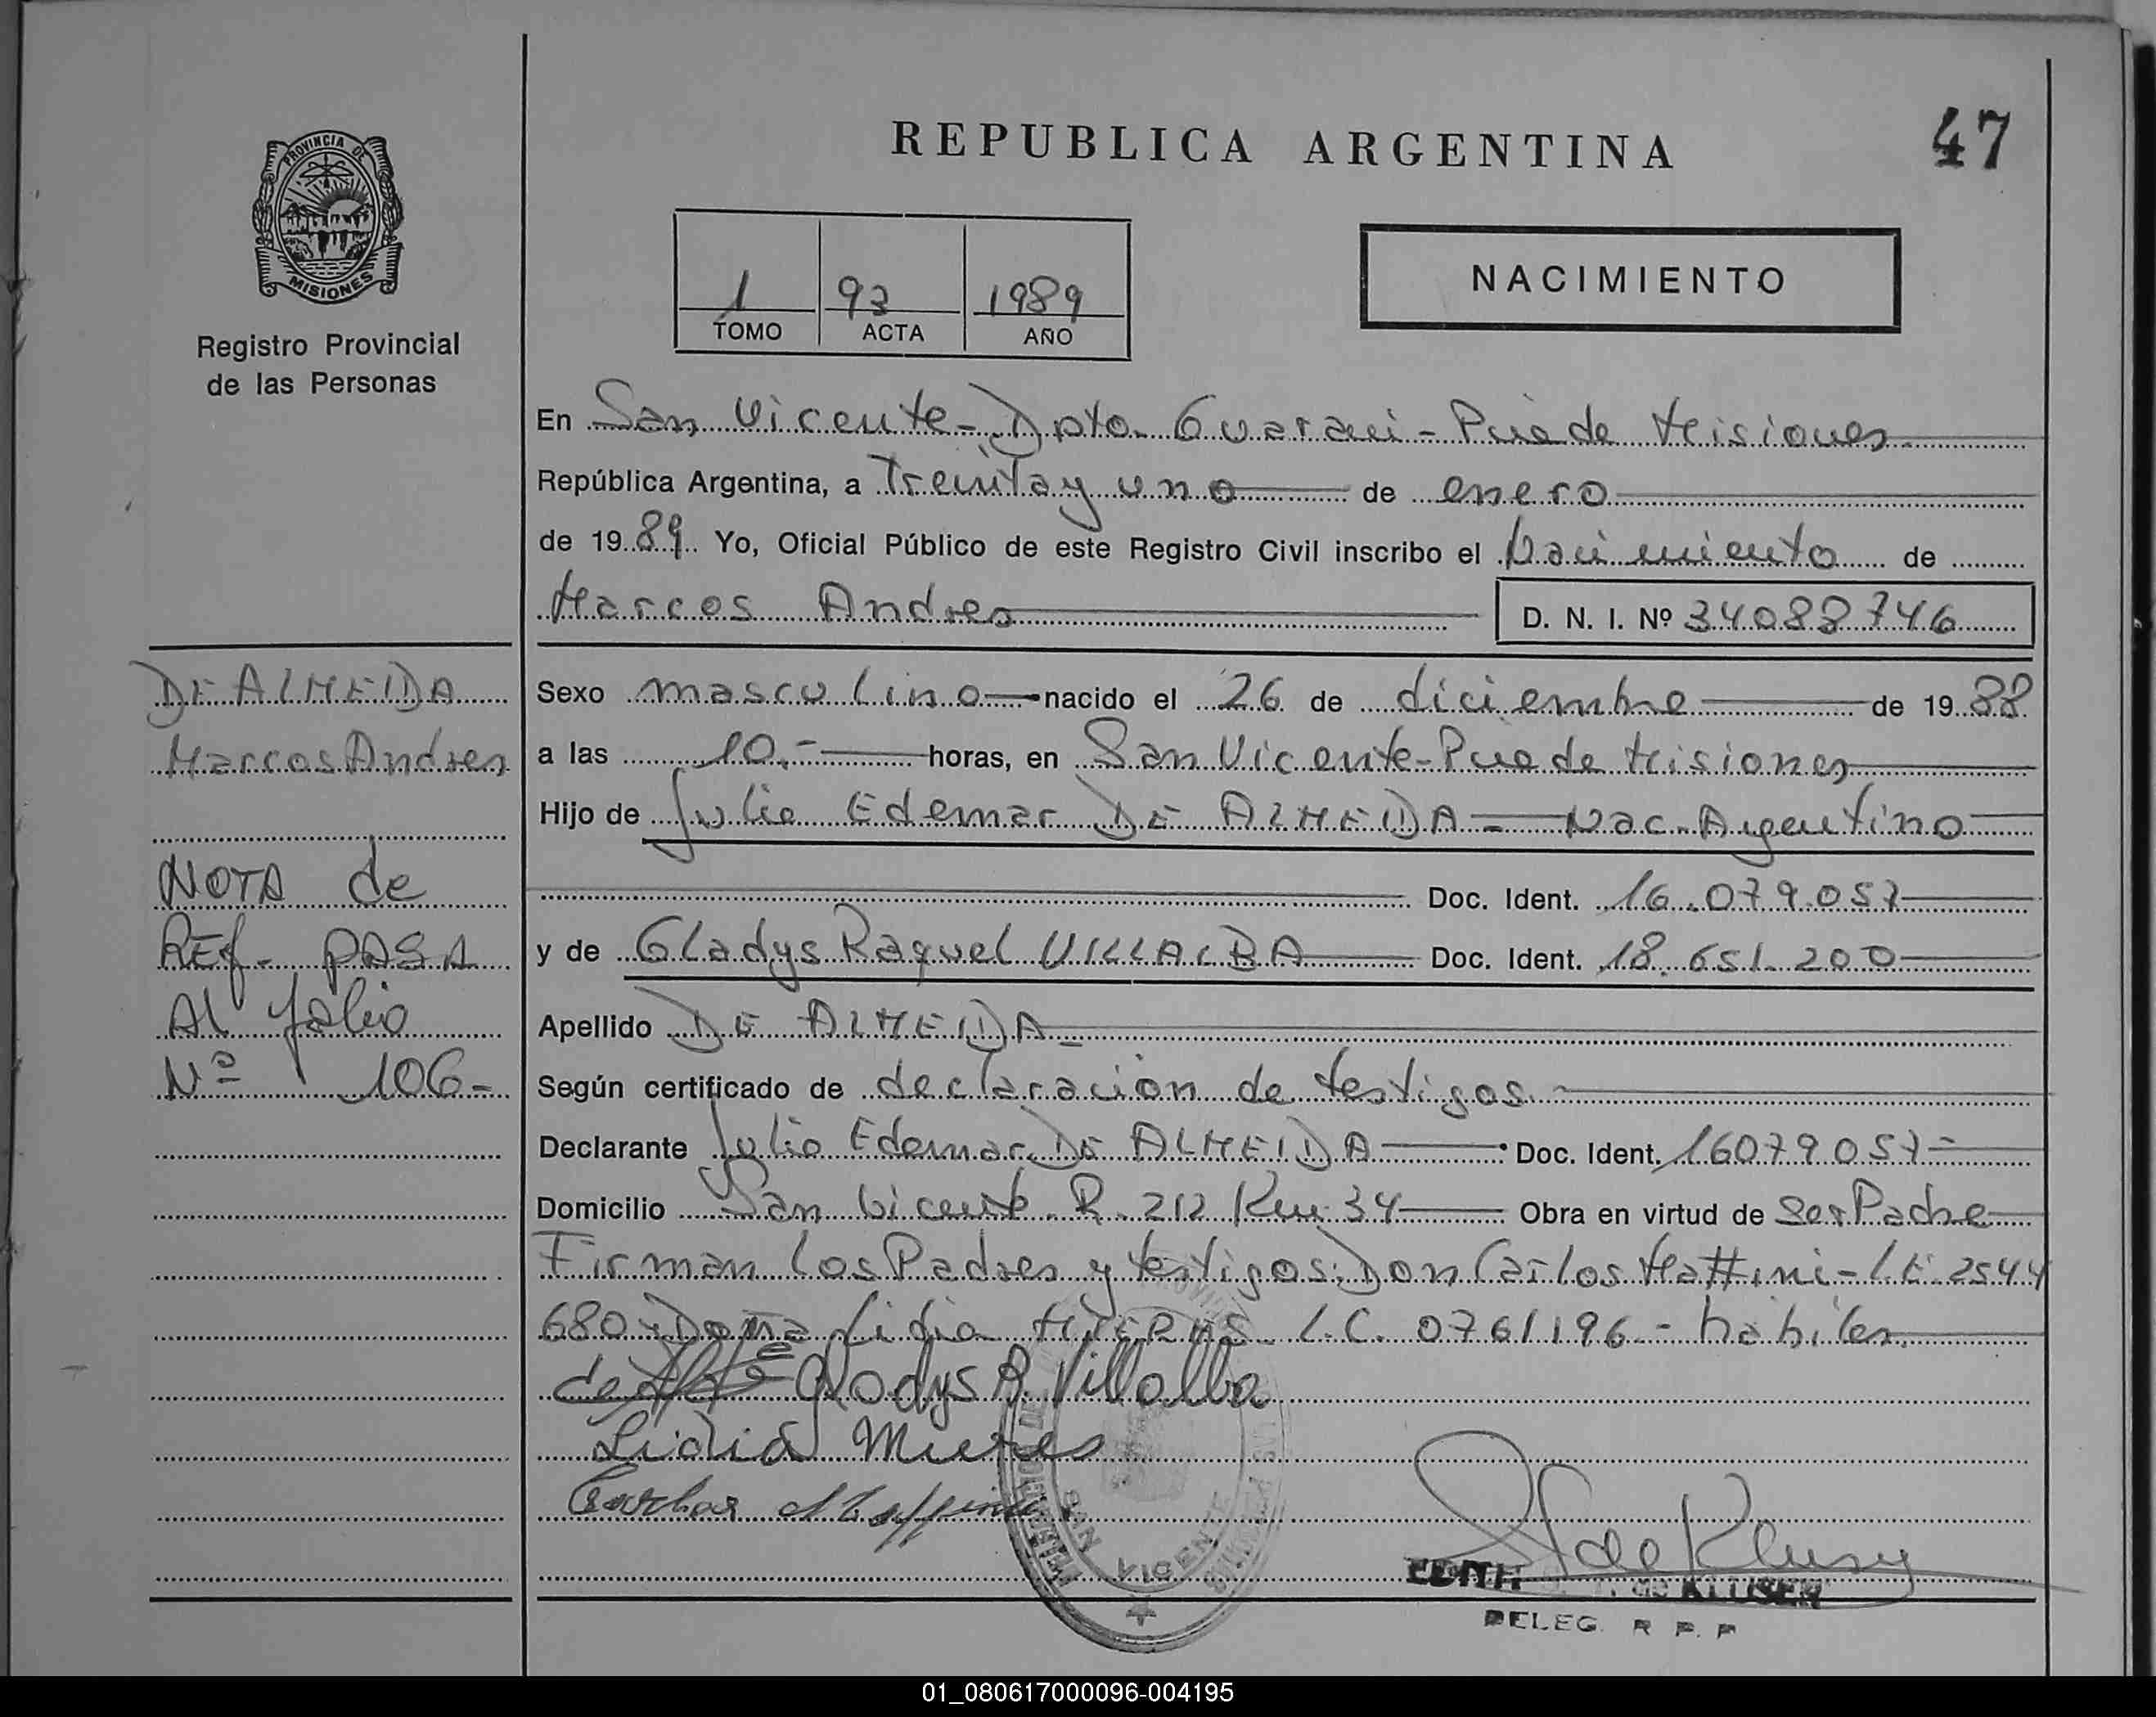 47
REPUBLICA ARGENTINA
PROVINCIA DE
MISIONES
Registro Provincial
de las Personas
1 93 1989
TOMO ACTA AÑO
NACIMIENTO
En San Vicente - Dpto. Guarani - Pcia de Misiones
República Argentina, a Treinta y uno de enero
de 1989. Yo, Oficial Público de este Registro Civil inscribo el Nacimiento de
Marcos Andres
D. N. I. Nº 34088746
Sexo masculino nacido el 26 de diciembre de 1988
a las 10.- horas, en San Vicente - Pcia de Misiones
Hijo de Julio Edemar DE ALMEIDA - Nac. Argentino
Doc. Ident. 16.079.057
y de Gladys Raquel VILLALBA Doc. Ident. 18.651.200
Apellido DE ALMEIDA
Según certificado de declaracion de testigos
Declarante Julio Edemar DE ALMEIDA Doc. Ident. 16079057
Domicilio San Vicente R. 212 Km 34 Obra en virtud de Ser Padre
Firman los Padres y testigos: Don Carlos Mattini - L.E. 2544
680 y Doña Lidia L.C. 0761196 - habiles
Gladys R. Villalba
Lidia
SAN VICENTE
EDITH KLUSEN
DELEG. R P. P
DE ALMEIDA
Marcos Andres
NOTA de
REf. PASA
Al folio
Nº 106-
01_080617000096-004195